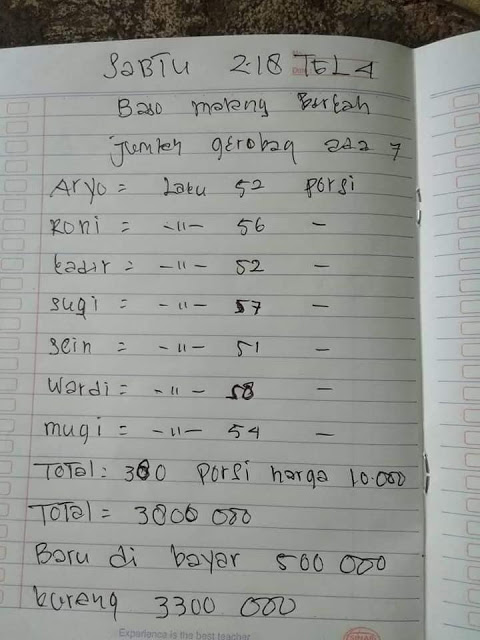 SABTU 2-18 TGL 4
Baso malang Berkah
Jumlah gerobag ada 7
Aryo = Laku 52 porsi
Roni = -11- 56 -
kadir = -11- 52 -
sugi = -11- 57 -
sein = -11- 51 -
wardi = -11- 58 -
mugi = -11- 54 -
TOTAL: 380 porsi harga 10.000
TOTAL = 3800 000
Baru di bayar 500 000
kureng 3300 000
Experience is the best teacher